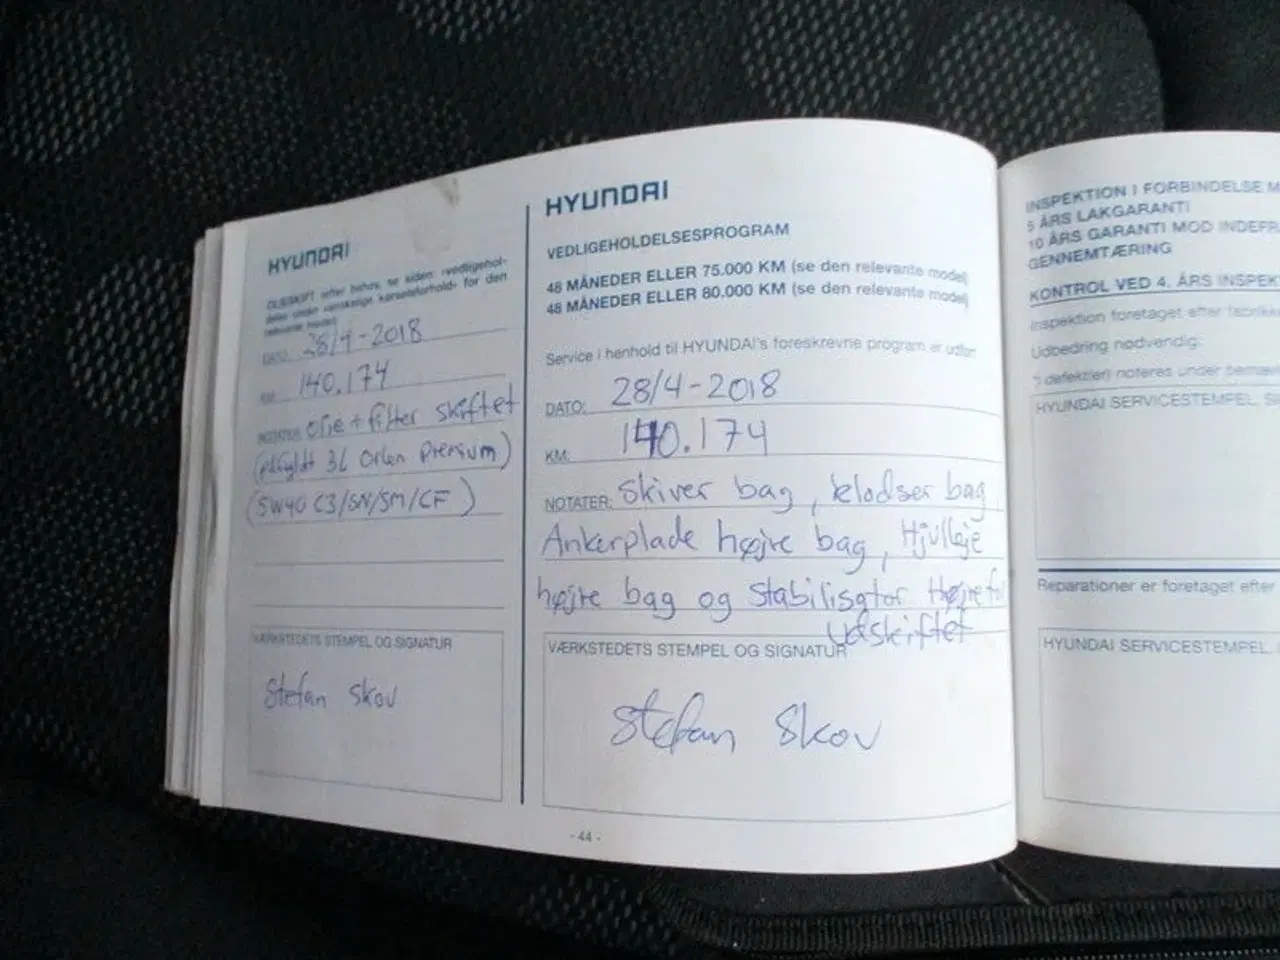 HYUNDAI
OLIESKIFT efter behov, se siden »vedligehol-
delse under vanskelige kørselsforhold« for den
relevante model
DATO: 28/4-2018
KM: 140.174
NOTATER: olie + filter skiftet
(påfyldt 3L Orlen Premium)
(5W40 C3/SN/SM/CF)
VÆRKSTEDETS STEMPEL OG SIGNATUR
Stefan Skov
HYUNDAI
VEDLIGEHOLDELSESPROGRAM
48 MÅNEDER ELLER 75.000 KM (se den relevante model)
48 MÅNEDER ELLER 80.000 KM (se den relevante model)
Service i henhold til HYUNDAI's foreskrevne program er udført
DATO: 28/4-2018
KM: 140.174
NOTATER: Skiver bag, klodser bag,
Ankerplade højre bag, Hjulleje
højre bag og stabilisator Højre for
udskiftet
VÆRKSTEDETS STEMPEL OG SIGNATUR
Stefan Skov
- 44 -
INSPEKTION I FORBINDELSE M
5 ÅRS LAKGARANTI
10 ÅRS GARANTI MOD INDEFR
GENNEMTÆRING
KONTROL VED 4. ÅRS INSPEK
Inspektion foretaget efter fabrikk
Udbedring nødvendig:
defekt(er) noteres under bemær
HYUNDAI SERVICESTEMPEL, S
Reparationer er foretaget efter
HYUNDAI SERVICESTEMPEL,